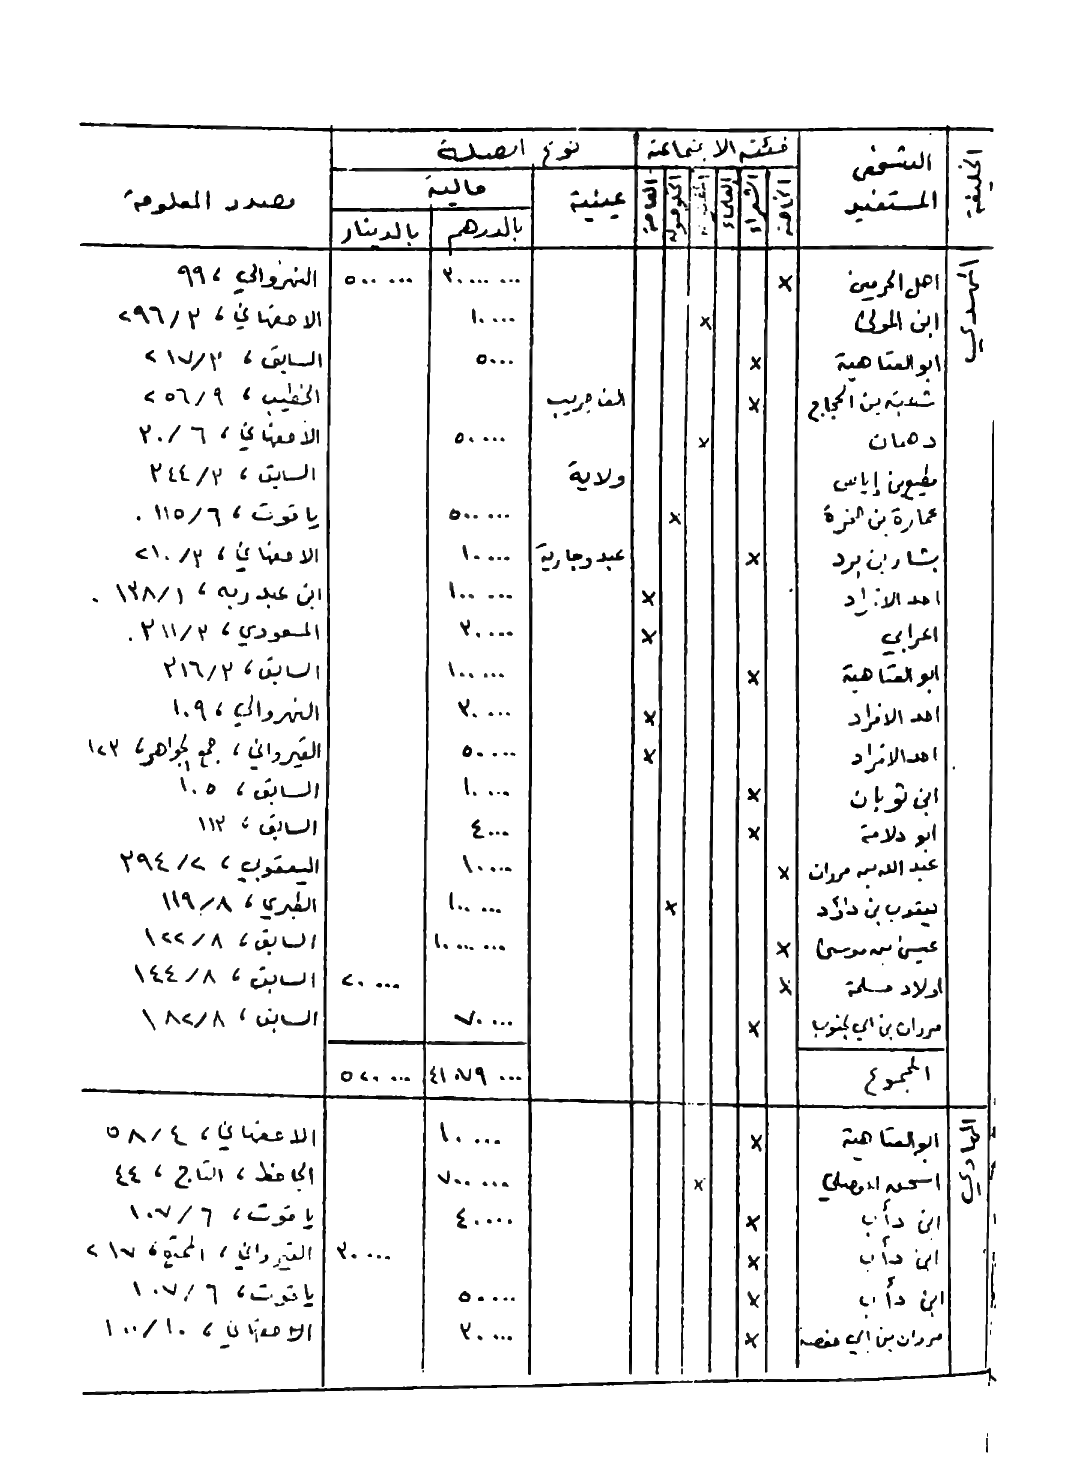 الخليفة | الشخص المستفيد | فئته الاجتماعية | نوع الصلة | مصدر المعلومة
الخاصة | الشعراء | العلماء | المغنين | الحكومة | العامة | عينية | مالية
بالدرهم | بالدينار
المهدي
اهل الحرمين | × | ٣٠٠٠٠٠٠٠ | ٥٠٠٠٠٠ | النهروالي ، ٩٩
ابن المولى | × | ١٠٠٠٠ | الاصفهاني ، ٢٩٦/٣
ابو العتاهية | × | ٥٠٠٠ | السابق ، ٢١٧/٣
بن الحجاج | × | الف جريب | الخطيب ، ٢٥٦/٩
دهمان | × | ٥٠٠٠٠ | الاصفهاني ، ٢٠/٦
مطيع بن إياس | ولاية | السابق ، ٢٤٤/٣
عمارة بن حمزة | × | ٥٠٠٠٠٠ | ياقوت ، ١١٥/٦ .
بشار بن برد | × | عبد وجارية | ١٠٠٠٠ | الاصفهاني ، ٢١٠/٣
احد الافراد | × | ١٠٠٠٠٠ | ابن عبد ربه ، ١٣٨/١ .
اعرابي | × | ٣٠٠٠٠ | المسعودي ، ٢١١/٣ .
ابو العتاهية | × | ١٠٠٠٠٠ | السابق ، ٢١٦/٣
احد الافراد | × | ٣٠٠٠٠ | النهروالي ، ١٠٩
احد الافراد | × | ٥٠٠٠٠ | القيرواني ، جمع الجواهر ، ١٢٣
ابن ثوبان | × | ١٠٠٠٠ | السابق ، ١٠٥
ابو دلامة | × | ٤٠٠٠ | السابق ، ١١٣
عبد الله بن مروان | × | ١٠٠٠٠ | اليعقوبي ، ٣٩٤/٢
يعقوب بن داؤد | × | ١٠٠٠٠٠ | الطبري ، ١١٩/٨
عيسى بن موسى | × | ١٠٠٠٠٠٠٠ | السابق ، ١٢٢/٨
اولاد مسلمة | × | ٢٠٠٠٠ | السابق ، ١٤٤/٨
مروان بن ابي الجنوب | × | ٧٠٠٠٠ | السابق ، ١٨٢/٨
المجموع | ٤١٠٧٩٠٠٠ | ٥٢٠٠٠٠
الهادي
ابو العتاهية | × | ١٠٠٠٠ | الاصفهاني ، ٥٨/٤
اسحق الموصلي | × | ٧٠٠٠٠٠ | الجاحظ ، التاج ، ٤٤
ابن دأب | × | ٤٠٠٠٠ | ياقوت ، ١٠٧/٦
ابن دأب | × | ٣٠٠٠٠ | القيرواني ، الممتع ، ٢١٧
ابن دأب | × | ٥٠٠٠٠ | ياقوت ، ١٠٧/٦
مروان بن ابي حفصة | × | ٣٠٠٠٠ | الاصفهاني ، ١٠٠/١٠